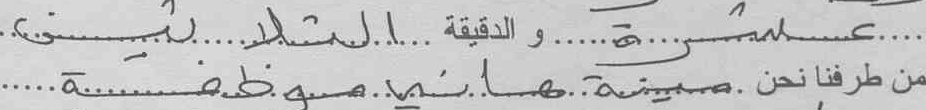 عشرة و الدقيقة الثلاثين
من طرفنا نحن مينة هاني موظفة